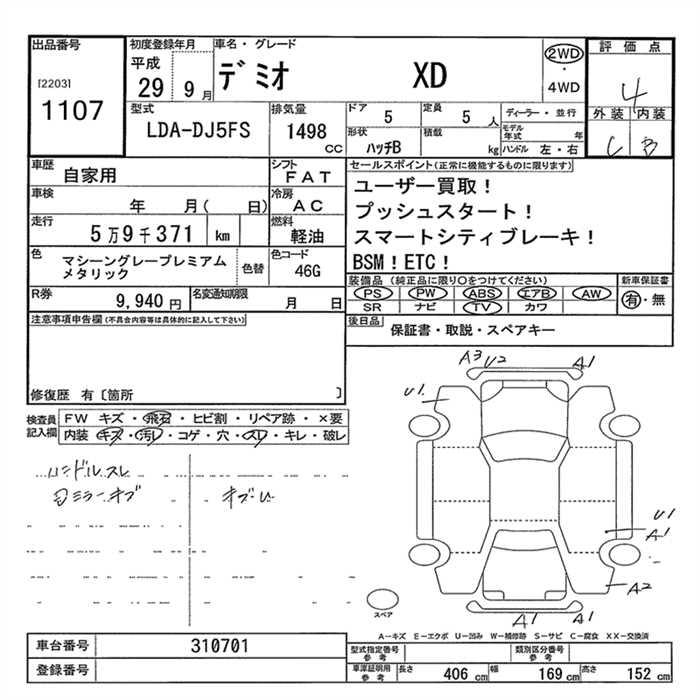 出品番号
[2203]
1107
初度登録年月
平成
29 9 月
車名・グレード
デミオ XD
2WD
・
4WD
評価点
4
外装 内装
C B
型式
LDA-DJ5FS
排気量
1498 CC
ドア 5
定員 5 人
ディーラー・並行
形状 ハッチB
積載 kg
モデル年式 年
ハンドル 左・右
車歴 自家用
シフト FAT
車検 年 月( 日)
冷房 AC
走行 5万9千371 km
燃料 軽油
色 マシーングレープレミアム
メタリック
色替
色コード 46G
R券 9,940 円
名変通知期限 月 日
セールスポイント(正常に機能するものに限ります)
ユーザー買取!
プッシュスタート!
スマートシティブレーキ!
BSM!ETC!
装備品(純正品に限り○をつけてください)
PS PW ABS エアB AW
SR ナビ TV カワ
新車保証書
有・無
後日品 保証書・取説・スペアキー
注意事項申告欄(不具合内容等は具体的に記入して下さい)
修復歴 有〔箇所 〕
検査員
記入欄
FW キズ・飛石・ヒビ割・リペア跡・×要
内装・キズ・汚レ・コゲ・穴・スレ・キレ・破レ
ハンドルスレ
ミラーキズ
A3 U2 A1
U1
U1
A1
A2
A1 A1
スペア
A－キズ E－エクボ U－凹み W－補修跡 S－サビ C－腐食 XX－交換済
車台番号 310701
登録番号
型式指定番号
参考
類別区分番号
参考
車庫証明用
参考
長さ 406 cm
幅 169 cm
高さ 152 cm